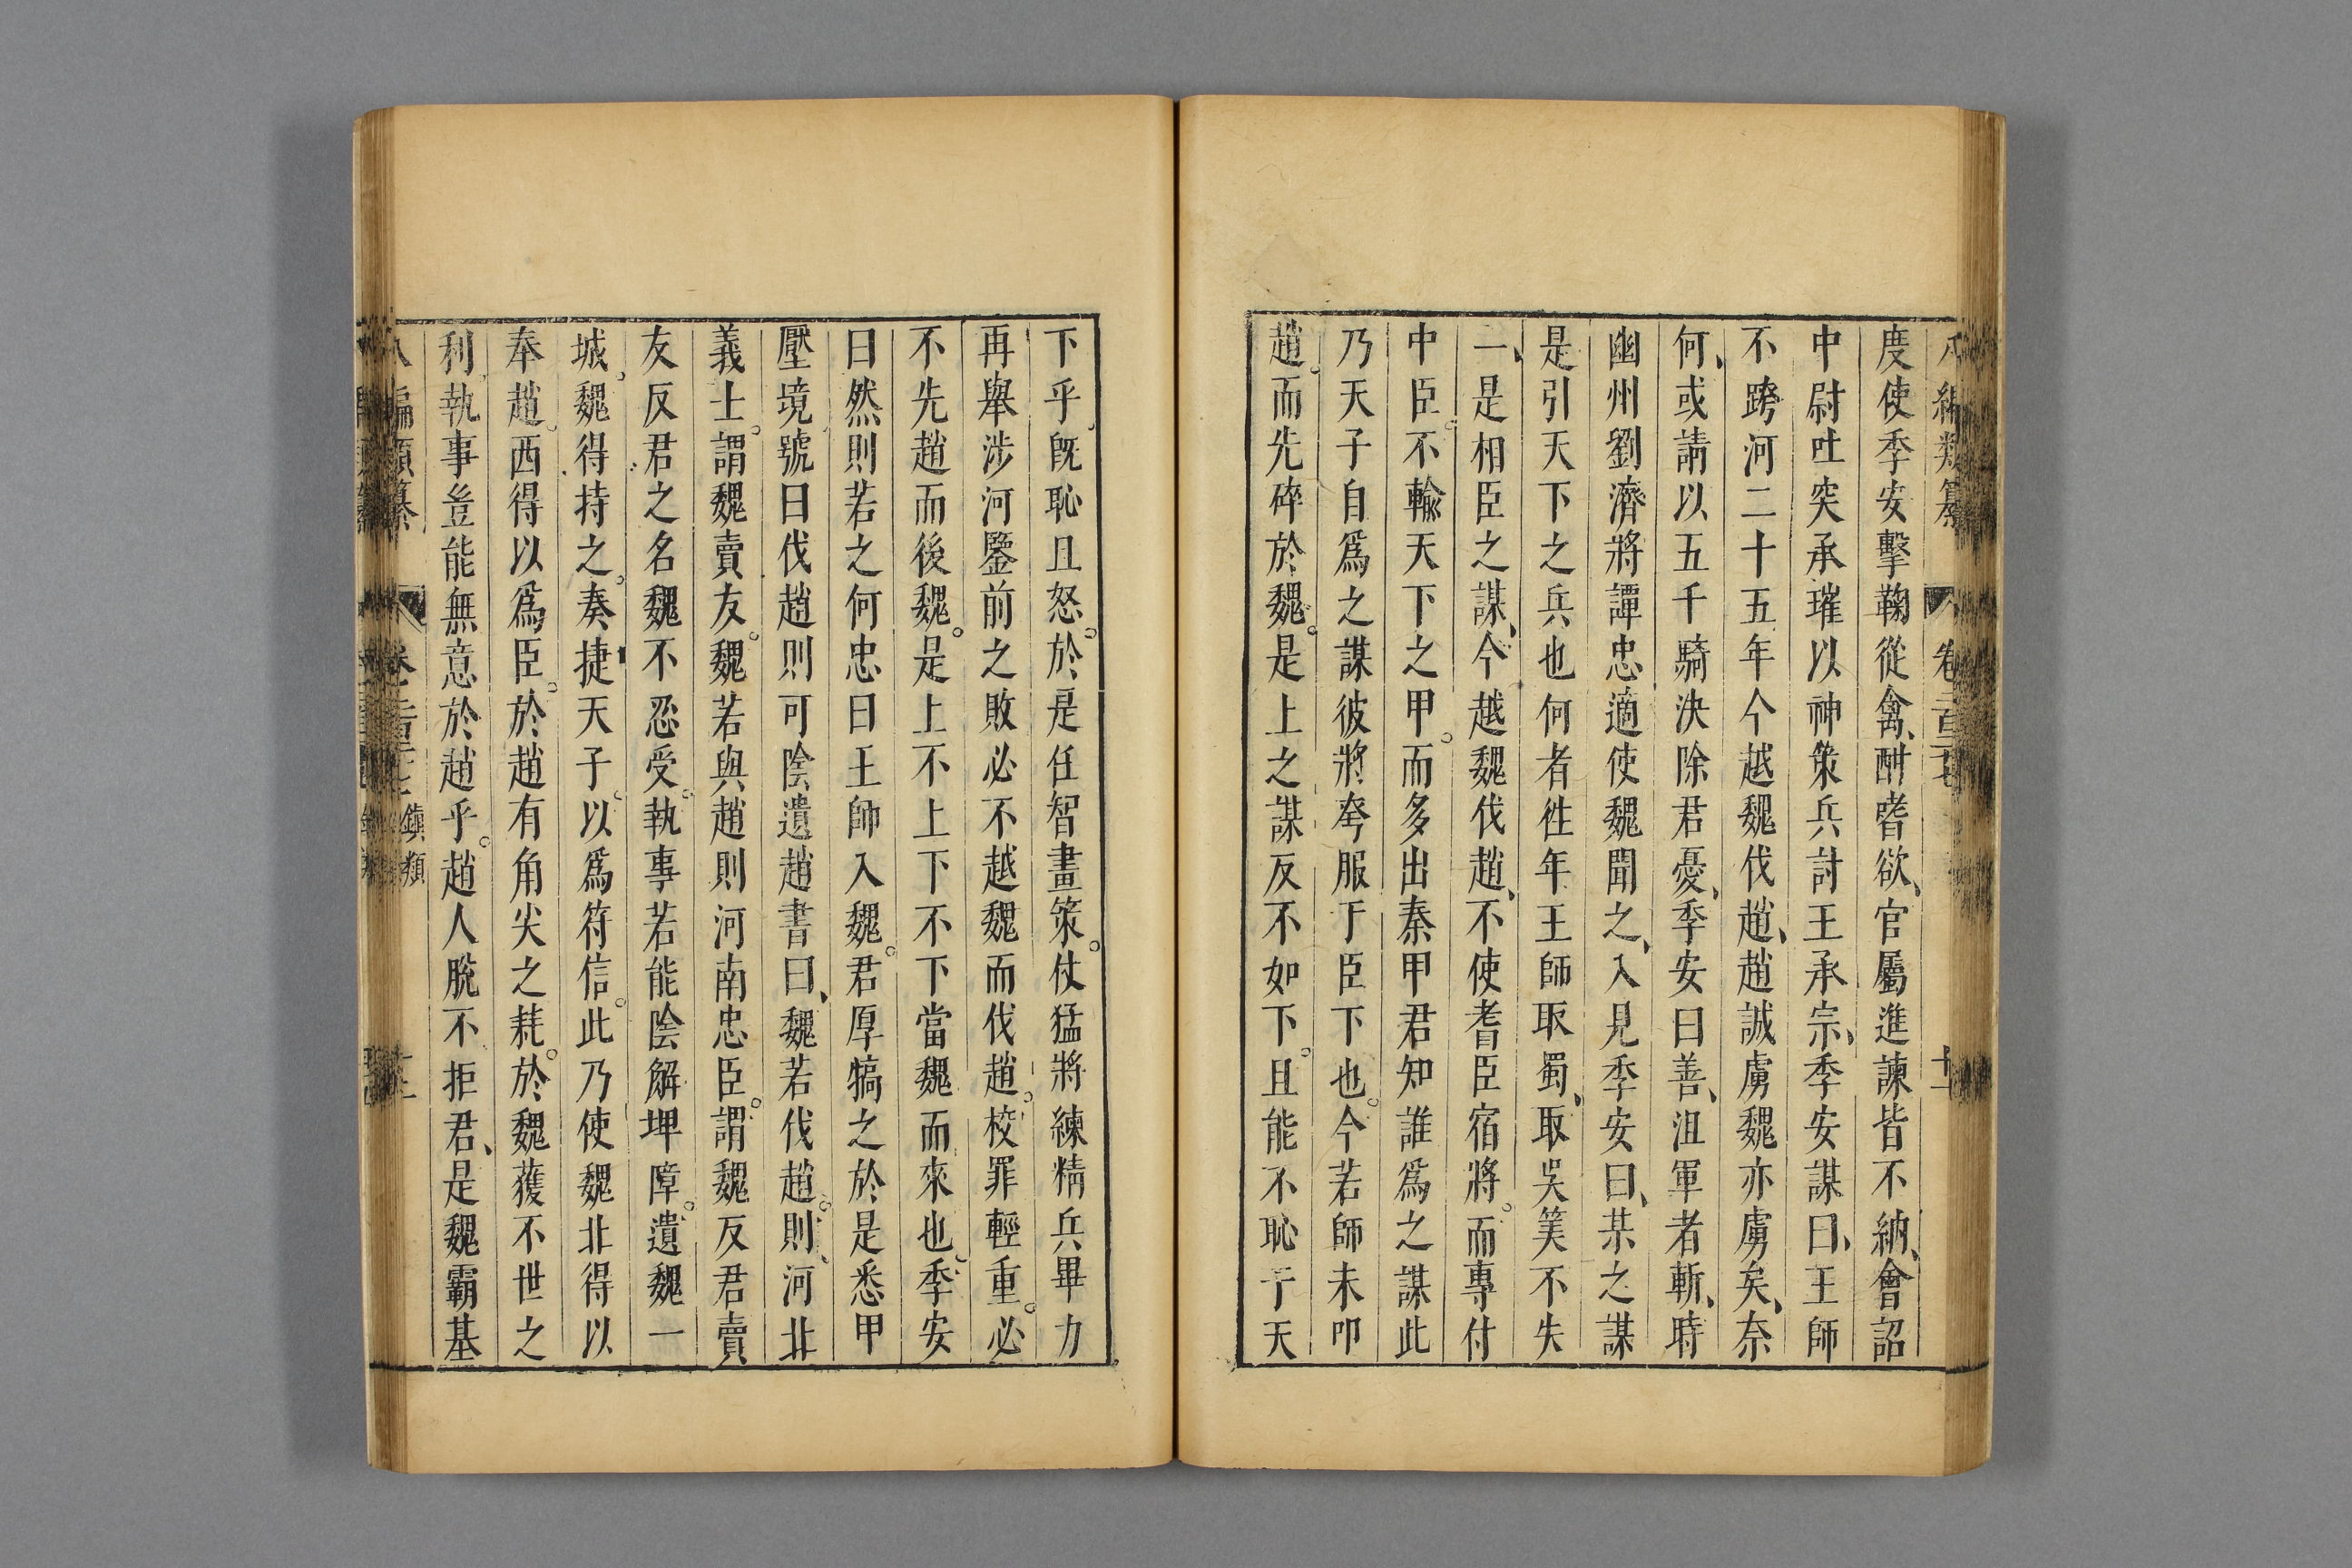 度使季安擊鞠從禽酣嗜欲官屬進諫皆不納會詔
中尉吐突承璀以神策兵討王承宗季安謀曰王師
不跨河二十五年今越魏伐趙趙誠虜魏亦虜矣奈
何或請以五千騎決除君憂季安曰善沮軍者斬時
幽州劉濟將譚忠適使魏聞之入見季安曰某之謀
是引天下之兵也何者徃年王師取蜀取吳筭不失
一是相臣之謀今越魏伐趙不使耆臣宿將而專付
中臣不輸天下之甲而多出秦甲君知誰爲之謀此
乃天子自爲之謀彼將夸服于臣下也今若師未叩
趙而先碎於魏是上之謀反不如下且能不恥于天
下乎旣恥且怒於是任智畫策仗猛將練精兵畢力
再舉涉河鑒前之敗必不越魏而伐趙校罪輕重必
不先趙而後魏是上不上下不下當魏而來也季安
曰然則若之何忠曰王師入魏君厚犒之於是悉甲
壓境號曰伐趙則可陰遺趙書曰魏若伐趙則河北
義士謂魏賣友魏若與趙則河南忠臣謂魏反君賣
友反君之名魏不忍受執事若能陰解埤障遺魏一
城魏得持之奏捷天子以爲符信此乃使魏北得以
奉趙西得以爲臣於趙有角尖之耗於魏獲不世之
利執事豈能無意於趙乎趙人脫不拒君是魏霸基
八編類纂
鎮類